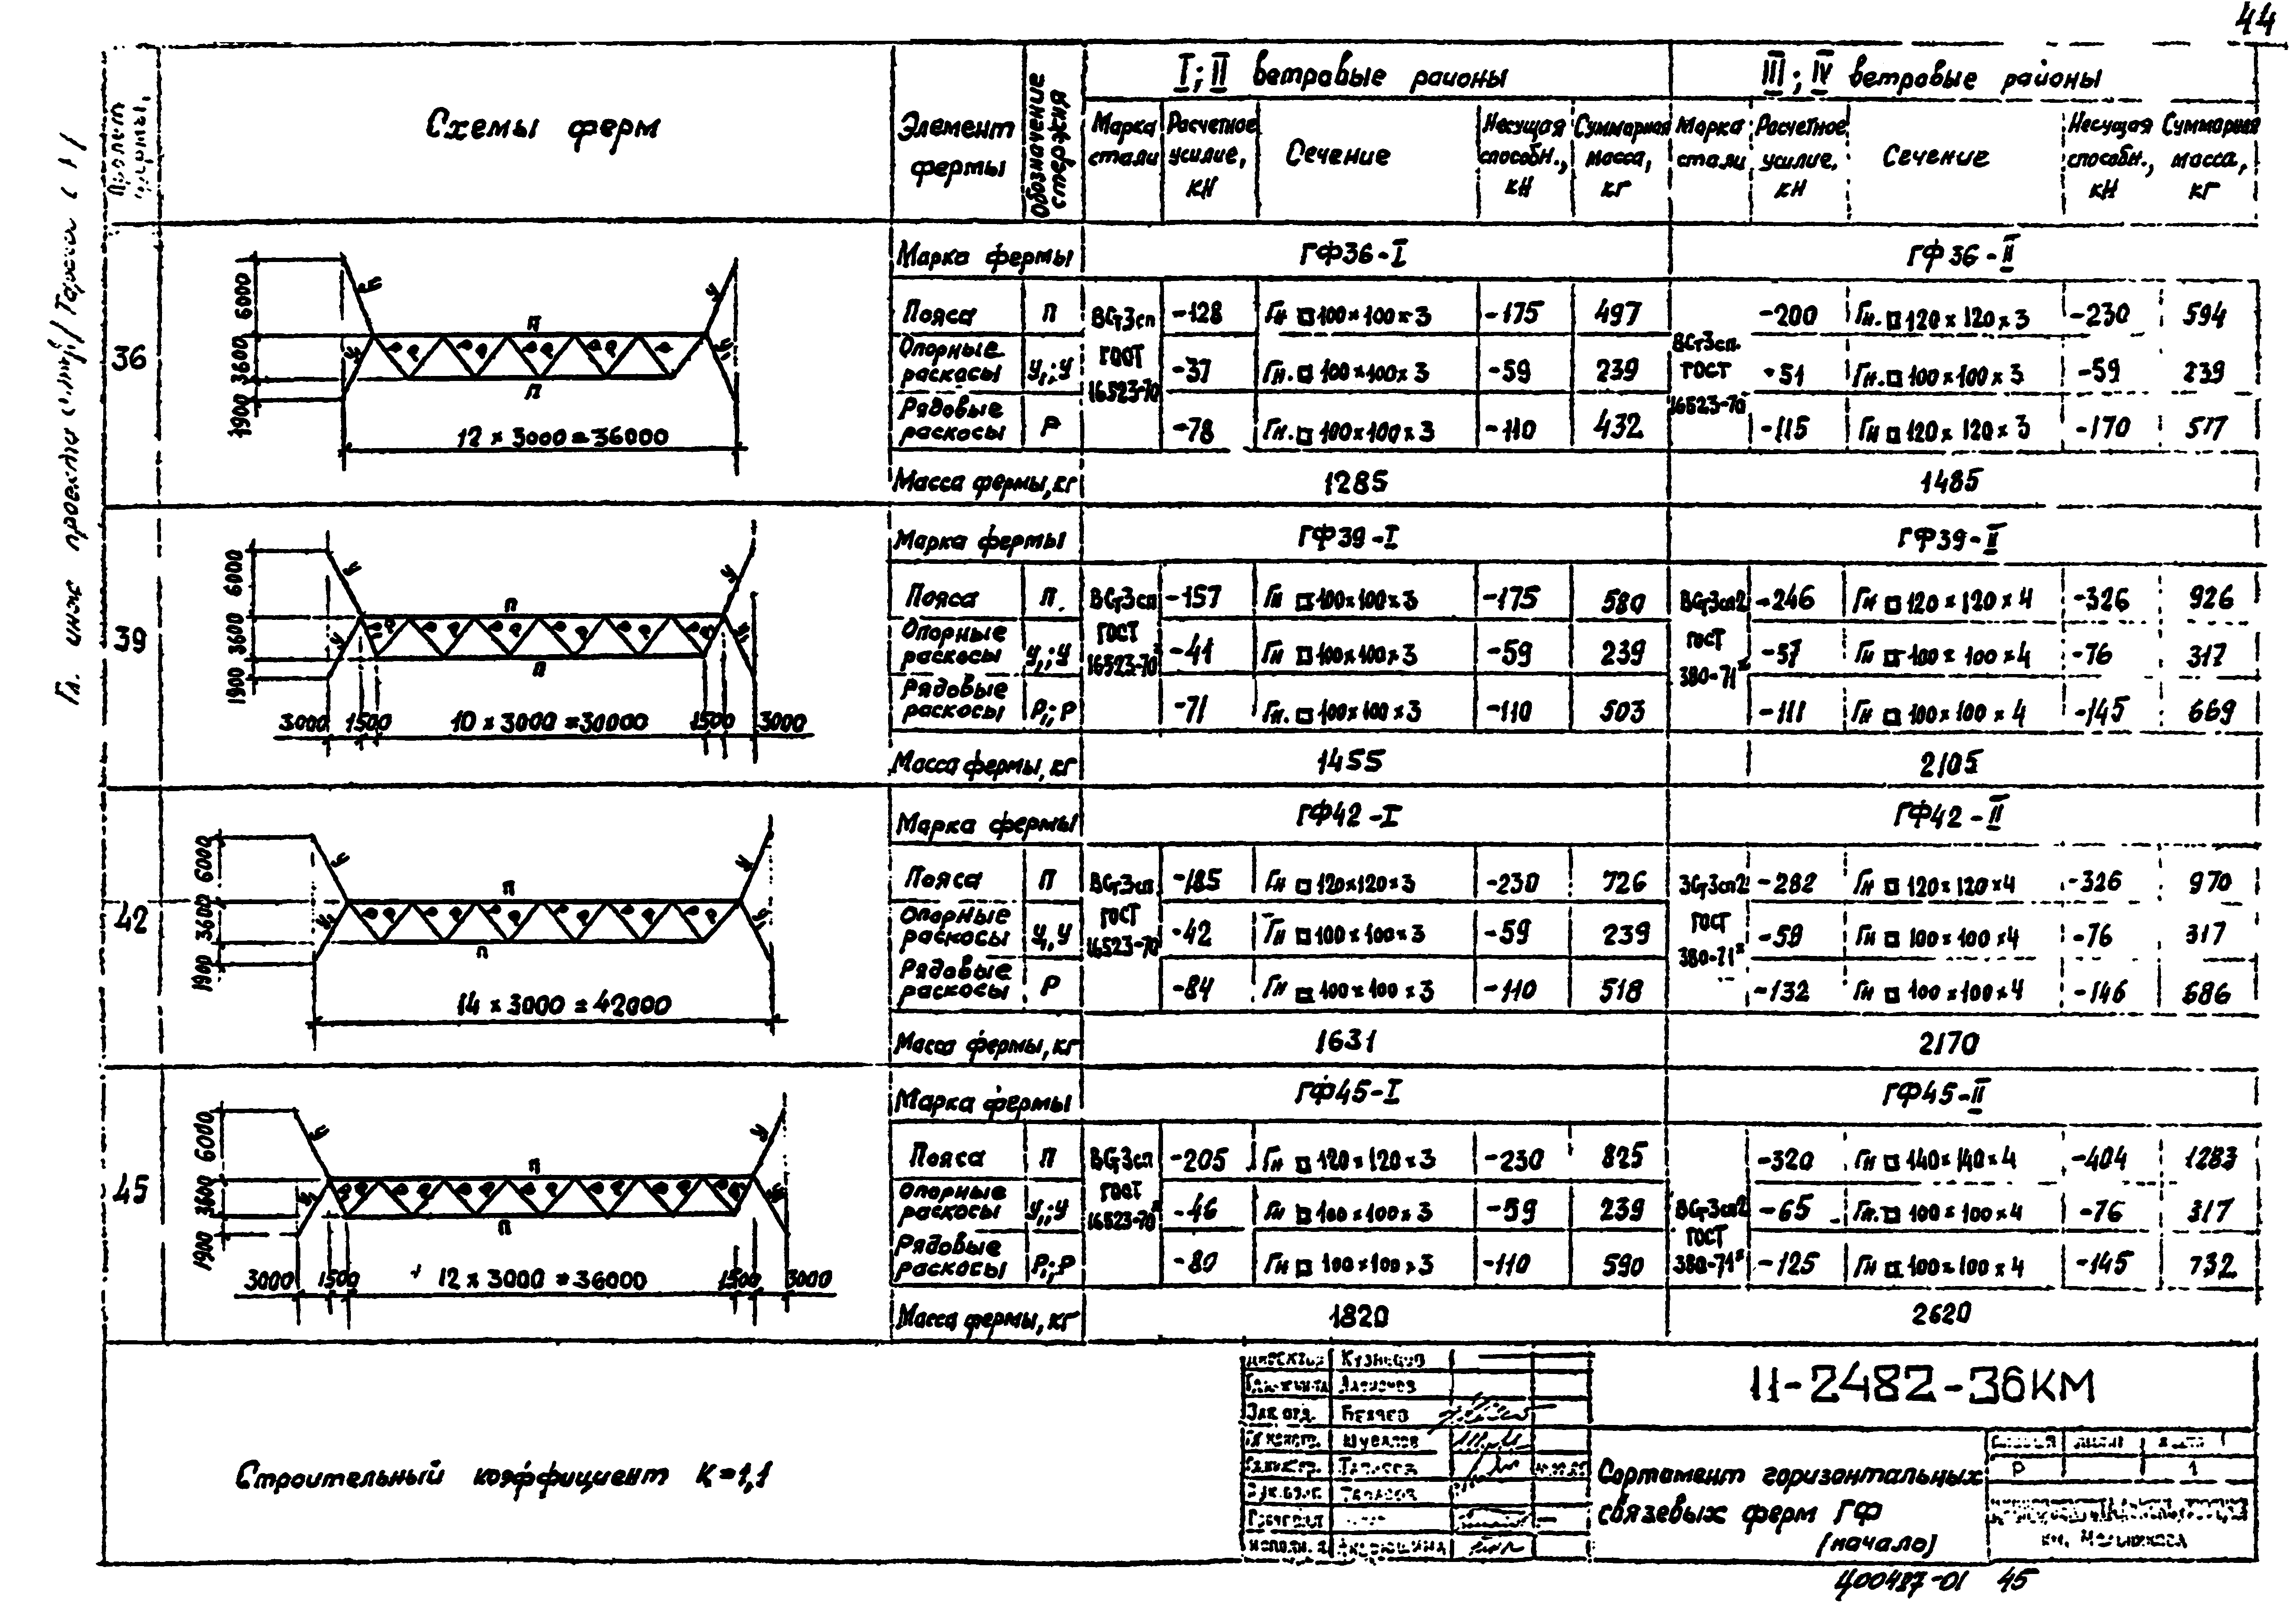 44
Схемы ферм
Элемент фермы
Обозначение стержня
I; II ветровые районы
III; IV ветровые районы
Марка стали
Расчетное усилие, кН
Сечение
Несущая способн., кН
Суммарная масса, кг
Марка стали
Расчетное усилие, кН
Сечение
Несущая способн., кН
Суммарная масса, кг
Гл. инж проекта
36
6000
3600
1900
У У П У У₁ П
12 × 3000 = 36000
Марка фермы ГФ36-I ГФ36-II
Пояса П ВСт3сп ГОСТ 16523-70 -128 Гн □ 100×100×3 -175 497 ВСт3сп. ГОСТ 16523-70 -200 Гн. □ 120×120×3 -230 594
Опорные раскосы У₁; У -37 Гн. □ 100×100×3 -59 239 -51 Гн. □ 100×100×3 -59 239
Рядовые раскосы Р -78 Гн. □ 100×100×3 -110 432 -115 Гн □ 120×120×3 -170 517
Масса фермы, кг 1285 1485
39
6000
3600
1900
3000 1500 10 × 3000 = 30000 1500 3000
Марка фермы ГФ39-I ГФ39-II
Пояса П. ВСт3сп ГОСТ 16523-70 -157 Гн □ 100×100×3 -175 580 ВСт3сп2 ГОСТ 380-71* -246 Гн □ 120×120×4 -326 926
Опорные раскосы У₁; У -41 Гн □ 100×100×3 -59 239 -57 Гн □ 100×100×4 -76 317
Рядовые раскосы Р₁; Р -71 Гн. □ 100×100×3 -110 503 -111 Гн □ 100×100×4 -145 669
Масса фермы, кг 1455 2105
42
6000
3600
1900
14 × 3000 = 42000
Марка фермы ГФ42-I ГФ42-II
Пояса П ВСт3сп ГОСТ 16523-70 -185 Гн □ 120×120×3 -230 726 ВСт3сп2 ГОСТ 380-71* -282 Гн □ 120×120×4 -326 970
Опорные раскосы У₁, У -42 Гн □ 100×100×3 -59 239 -59 Гн □ 100×100×4 -76 317
Рядовые раскосы Р -84 Гн □ 100×100×3 -110 518 -132 Гн □ 100×100×4 -146 686
Масса фермы, кг 1631 2170
45
6000
3600
1900
3000 1500 12 × 3000 = 36000 1500 3000
Марка фермы ГФ45-I ГФ45-II
Пояса П ВСт3сп ГОСТ 16523-70* -205 Гн □ 120×120×3 -230 825 ВСт3сп2 ГОСТ 380-71* -320 Гн □ 140×140×4 -404 1283
Опорные раскосы У₁; У -46 Гн □ 100×100×3 -59 239 -65 Гн. □ 100×100×4 -76 317
Рядовые раскосы Р₁; Р -80 Гн □ 100×100×3 -110 590 -125 Гн □ 100×100×4 -145 732
Масса фермы, кг 1820 2620
Строительный коэффициент К=1,1
Кузнецов
11-2482-36КМ
Сортамент горизонтальных
связевых ферм ГФ
(начало)
Р 1
Ц00487-01 45